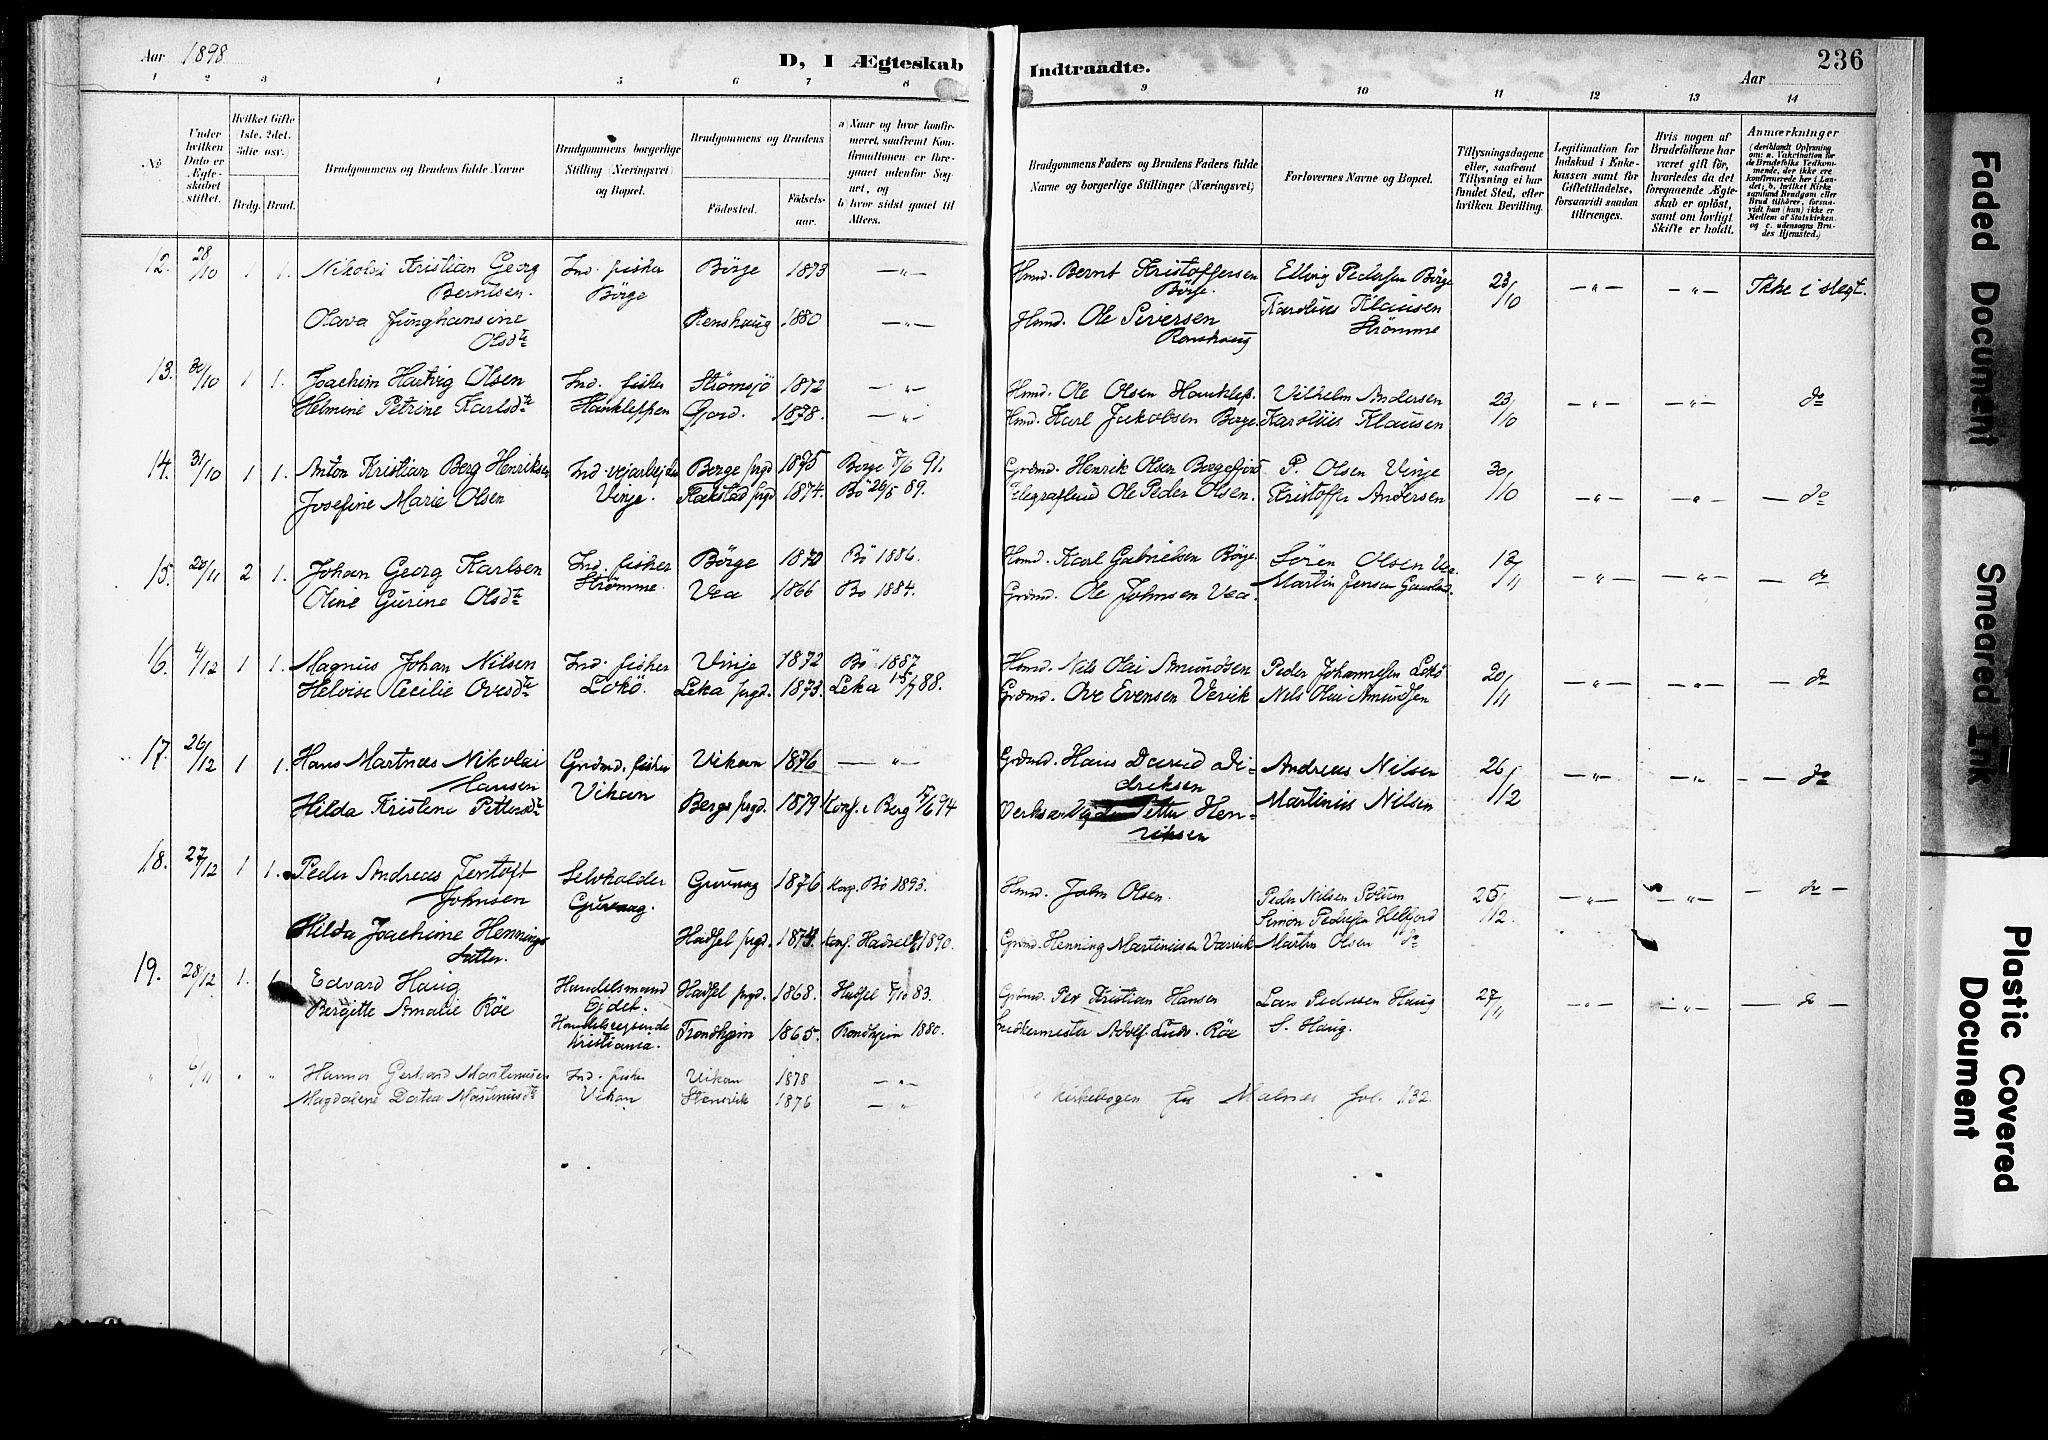 Aar 1898
D, I Ægteskab Indtraadte.
Aar
236
1 2 3 4 5 6 7 8 9 10 11 12 13 14
No
Under hvilken Dato er Ægteskabet stiftet.
Hvilket Gifte 1ste, 2det, 3die osv.)
Brdg. Brud.
Brudgommens og Brudens fulde Navne
Brudgommens borgerlige Stilling (Næringsvei) og Bopæl.
Brudgommens og Brudens
Fødested. Fødselsaar.
a) Naar og hvor konfirmeret, saafremt Konfirmationen er foregaaet udenfor Sognet, og
b) hvor sidst gaaet til Alters.
Brudgommens Faders og Brudens Faders fulde Navne og borgerlige Stillinger (Næringsvei)
Forlovernes Navne og Bopæl.
Tillysningsdagene eller, saafremt Tillysning ei har fundet Sted, efter hvilken Bevilling.
Legitimation for Indskud i Enkekassen samt for Giftetilladelse, forsaavidt saadan tiltrænges.
Hvis nogen af Brudefolkene har været gift før, hvorledes da det foregaaende Ægteskab er opløst, samt om lovligt Skifte er holdt.
Anmærkninger (deriblandt Oplysning om: a. Vakcination for de Brudefolks Vedkommende, der ikke ere konfirmerede her i Landet; b. hvilket Kirkesamfund Brudgom eller Brud tilhører, forsaavidt han (hun) ikke er Medlem af Statskirken, og c. udensogns Brudes Hjemsted.)
12. 28/10 1 1. Nikolai Kristian Georg Ind. fisker Børge 1873 —"— Hmd. Bernt Kristoffersen Ellvig Pedersen Børge 23/10 —"— —"— Ikke i slegt.
Berntsen. Børge Børge. Karolius Klausen
Olava Junghansine Renshaug 1880 —"— Hmd. Ole Siversen Strømme
Olsdte Renshaug
13. 30/10 1 1. Joachim Hartvig Olsen Ind. fisker Strømsjö 1872 —"— Hmd. Ole Olsen Haukleb. Vilhelm Andersen 23/10 —"— —"— do
Helmine Petrine Karlsdte Haukleppen Gjord. 1878. —"— Hmd. Karl Jakobsen Børge. Karolius Klausen
14. 31/10 1 1. Anton Kristian Berg Henriksen Ind. vejarbejder Borge prgd 1875 Borge 7/6 91. Grdmd. Henrik Olsen Borgefjord P. Olsen Vinje 30/10 —"— —"— — do
Josefine Marie Olsen Vinje. Flakstad prgd 1874. Bö 26/5 89. Ole Peder Olsen. Kristoffer Andersen
15. 20/11 2 1. Johan Georg Karlsen Ind. fisker Børge 1870 Bö 1886. Hmd. Karl Gabrielsen Børge. Sören Olsen Vea. 13/11 —"— —"— — do
Oline Gurine Olsdte Strømme. Vea 1866 Bo 1884. Grdmd. Ole Johnsen Vea. Martin Jensen
16. 4/12 1 1. Magnus Johan Nilsen Ind. fisker Vinje 1872 Bö 1887 Hmd. Nils Olai Amundsen Peder Johannesen Lokö 20/11 —"— —"— — do
Helvise Cecilie Ovesdte Lokö. Leka prgd. 1873. Leka 15/7 88. Grdmd. Ove Evensen Vervik Nils Olai Amundsen
17. 26/12 1 1. Hans Martnæs Nikolai Grdmd. fisker Vikan 1876 —"— Grdmd. Hans David Di- Andreas Nilsen 26/12 —"— —"— — do
Hansen Vikan driksen
Hilda Kristene Pettersdte Bergs prgd. 1879 Konf. i Berg 17/6 94 Petter Hen- Martinius Nilsen
riksen
18. 27/12 1 1. Peder Andreas Jentoft Selvholder Guvaag 1876 Konf. Bö 1893. Hmd. John Olsen. Peder Nilsen Solum 25/12. —"— —"— — do —
Johnsen Guvaag. Simon Pedersen
Hilda Joachime Hennings- Hadsel prgd. 1874. Konf. Hadsel 1890. Grdmd. Henning Martinussen Vaarvik Martin Olsen do
datter.
19. 28/12 1. 1. Edvard Haug Handelsmand Hadsel prgd. 1868. Hadsel 7/10 83. Grdmd. Per Kristian Hansen Lars Pedersen Haug 27/11 —"— —"— — do —
Bergitte Amalie Röe Ejdet. Snedkermester Adolf Ludv. Röe S. Haug.
Handelsrejsende Trondhjem 1865. Trondhjem 1880.
Kristiania.
" 6/11 " " Hannor Gerhard Martinussen Ind. fisker Vikan 1878 —"—
Magdalene Dortea Martinusdt Vikan Stensvik 1876 —"— kirkebogen for Malnes fol. 132.
Faded Document
Smeared Ink
Plastic Covered Document